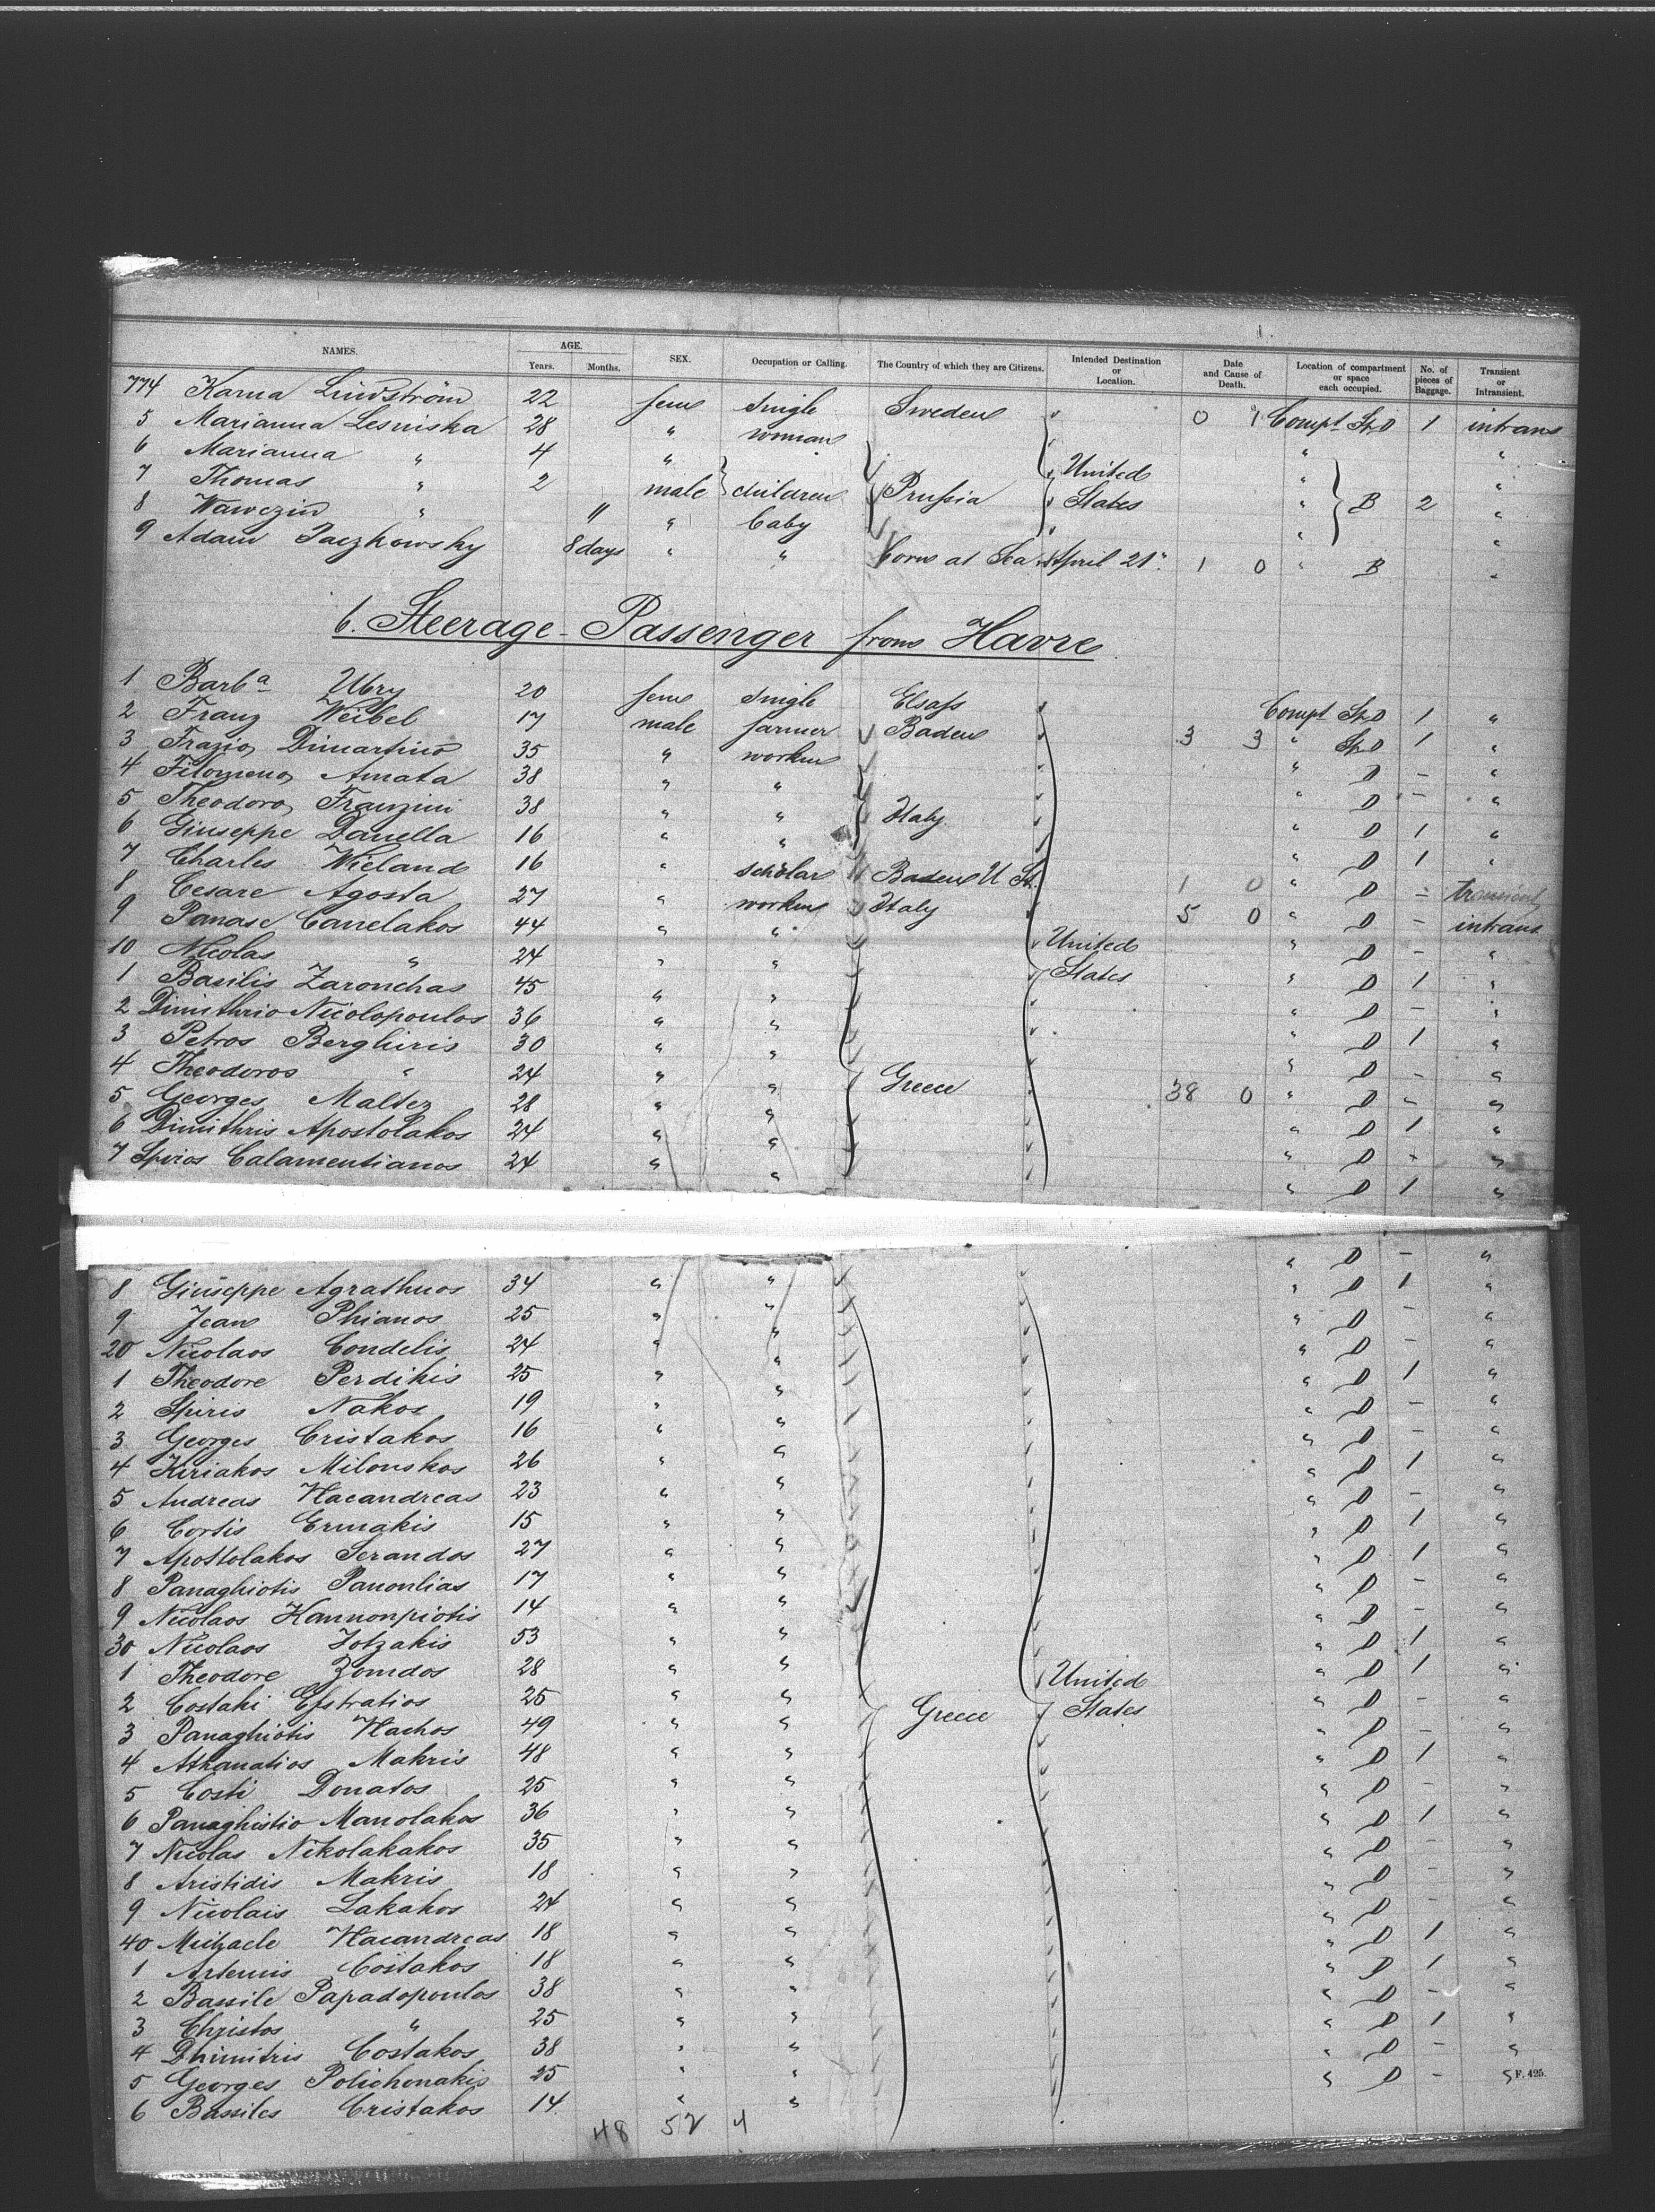 NAMES. AGE. Years. Months. SEX. Occupation or Calling. The Country of which they are Citizens. Intended Destination or Location. Date and Cause of Death. Location of compartment or space each occupied. No. of pieces of Baggage. Transient or Intransient.
774 Karna Lindström 22 feme single Sweden 0 1 Compt St.D 1 intrans
5 Marianna Lesniska 28 " woman " "
6 Marianna " 4 " United " "
7 Thomas " 2 male children Prussia States " B 2 "
8 Wawczin " 11 " baby " "
9 Adam Jaczkowsky 8 days " " born at Sea April 21" 1 0 " B "
6. Steerage-Passenger from Havre
1 Barba Ubry 20 feme single Elsass Compt St.D 1 "
2 Franz Weibel 17 male farmer Baden 3 3 " St.D 1 "
3 Frazio Dimartino 35 " worker " D - "
4 Filomeno Amata 38 " " " D - "
5 Theodoro Franzini 38 " " Italy " D 1 "
6 Giuseppe Danella 16 " " " D 1 "
7 Charles Wieland 16 " scholar Baden U St. 1 0 " D - transient
8 Cesare Agosta 27 " worker Italy 5 0 " D - intrans
9 Panase Canelakos 44 " " United " D - "
10 Nicolas " 24 " " States " D 1 "
1 Basilis Zaronchas 45 " " " D - "
2 Dimithrio Nicolopoulos 36 " " " D 1 "
3 Petros Berghiris 30 " " " D - "
4 Theodoros " 24 " " Greece 38 0 " D - "
5 Georges Maltez 28 " " " D 1 "
6 Dimithris Apostolakos 24 " " " D - "
7 Spiros Calamentianos 24 " " " D 1 "
" D - "
8 Giuseppe Agrathuos 34 " " " D 1 "
9 Jean Phianos 25 " " " D - "
20 Nicolaos Condelis 24 " " " D - "
1 Theodore Perdikis 25 " " " D 1 "
2 Spiris Nakos 19 " " " D - "
3 Georges Cristakos 16 " " " D - "
4 Kiriakos Milonskos 26 " " " D 1 "
5 Andreas Hacandreas 23 " " " D - "
6 Cortis Ermakis 15 " " " D 1 "
7 Apostolakos Serandos 27 " " " D 1 "
8 Panaghiotis Panonlias 17 " " " D - "
9 Nicolaos Hannonpiotis 14 " " " D - "
30 Nicolaos Jotzakis 53 " " " D 1 "
1 Theodore Zomdos 28 " " United " D 1 "
2 Costaki Efstratios 25 " " Greece States " D - "
3 Panaghiotis Hachos 49 " " " D - "
4 Athanatios Makris 48 " " " D 1 "
5 Costi Donatos 25 " " " D - "
6 Panaghistio Manolakos 36 " " " D 1 "
7 Nicolas Nikolakakos 35 " " " D - "
8 Aristidis Makris 18 " " " D - "
9 Nicolais Lakakos 24 " " " D - "
40 Mitzacle Hacandreas 18 " " " D 1 "
1 Artemis Costakos 18 " " " D 1 "
2 Bassile Papadopoulos 38 " " " D - "
3 Christos " 25 " " " D 1 "
4 Dhimitris Costakos 38 " " " D - "
5 Georges Polichonakis 25 " " " D - " F. 425.
6 Bassiles Cristakos 14 " "
48 52 4